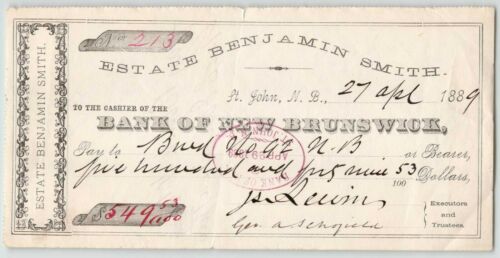 No 213
ESTATE BENJAMIN SMITH.
ESTATE BENJAMIN SMITH.
St. John, N. B., 27 apl 1889
TO THE CASHIER OF THE
BANK OF NEW BRUNSWICK,
Pay to No 92 N.B or Bearer,
five hundred and nine 53/100 Dollars,
$549 53/100
Executors
and
Trustees.